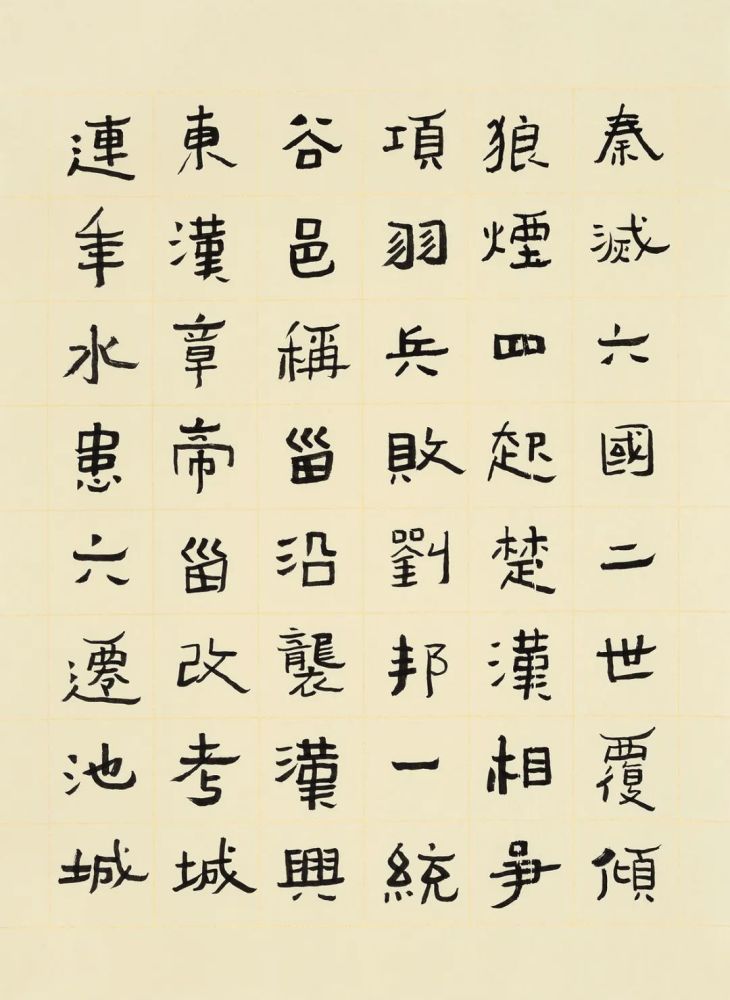 秦滅六國二世覆傾
狼煙四起楚漢相爭
項羽兵敗劉邦一統
谷邑稱甾沿襲漢興
東漢章帝甾改考城
連年水患六遷池城